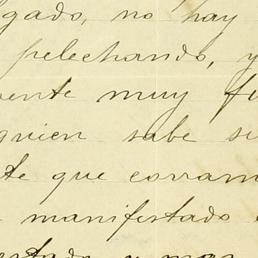 gado, no hay
pelechando, y
ente muy fu
quien sabe si
te que corram
manifestado
estado y mas